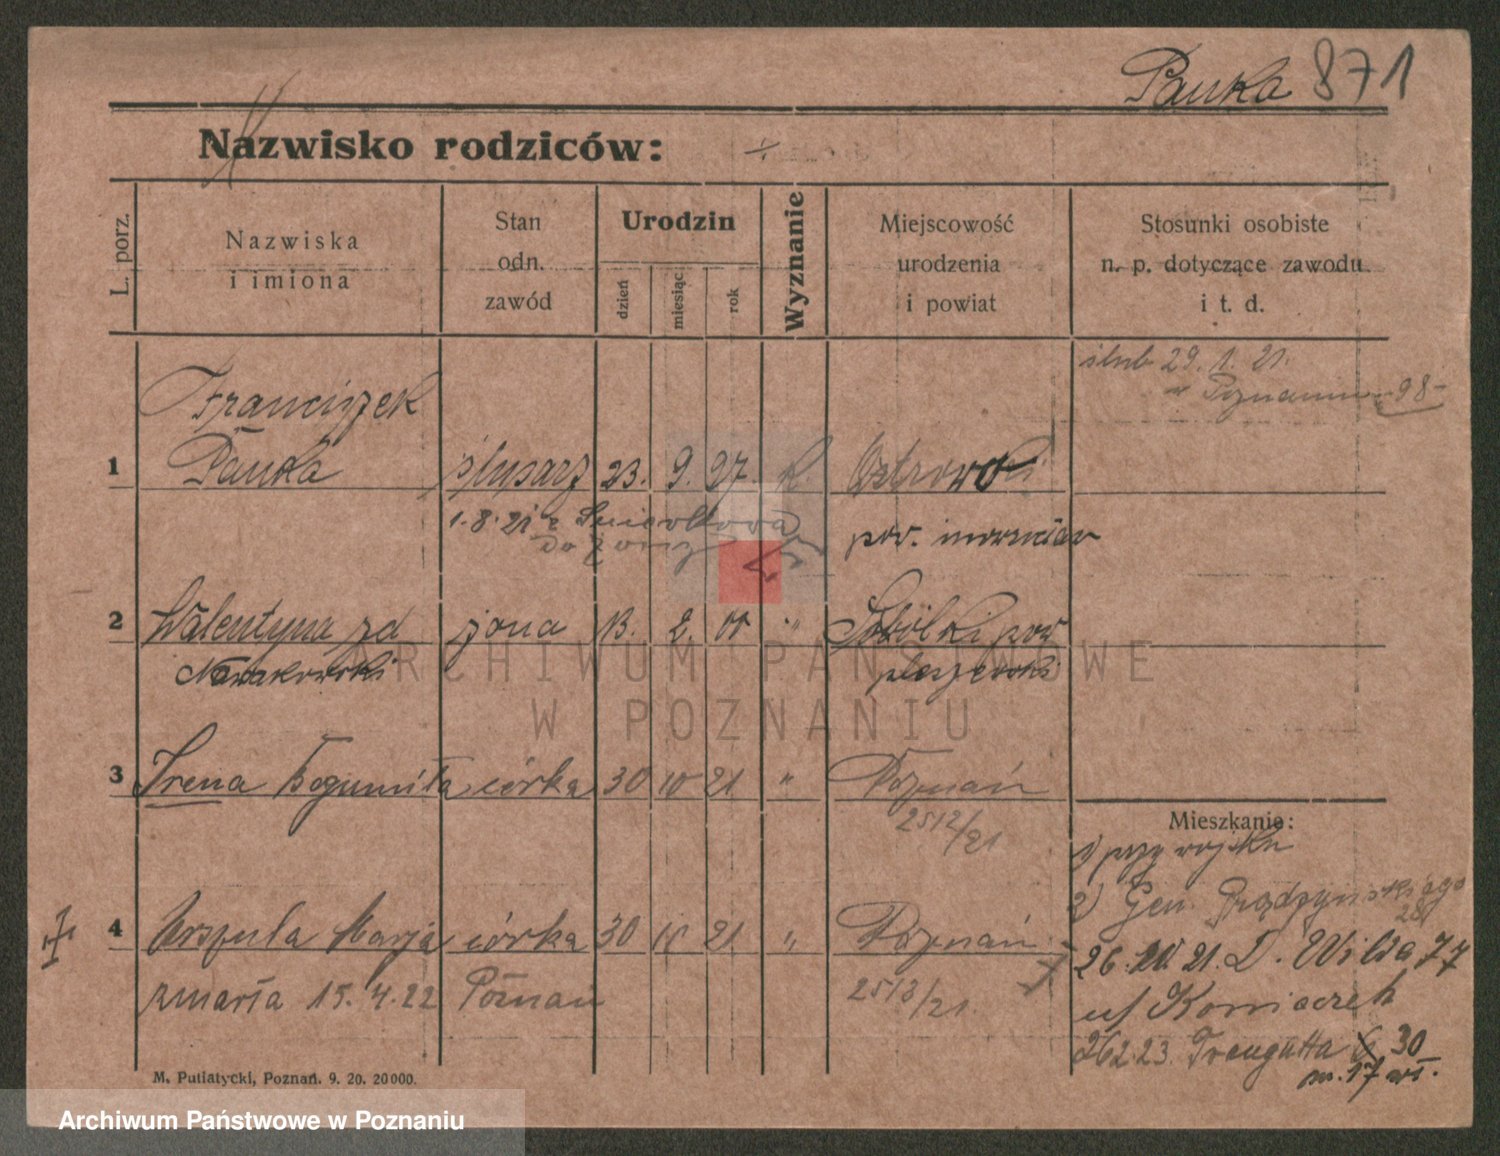 Pauka 871
Nazwisko rodziców:
L. porz.
Nazwiska
i imiona
Stan
odn.
zawód
Urodzin
dzień
miesiąc
rok
Wyznanie
Miejscowość
urodzenia
i powiat
Stosunki osobiste
n. p. dotyczące zawodu
i t. d.
ślub 29. 1. 21.
w Poznaniu 98
Franciszek
1 Pauka ślusarz 23. 9. 97. k. Ostrowo
1. 8. 21 z
do
pow. inowrocław
2 Walentyna zd żona 13. 2. 00 " Sobótki pow
Nowakowski pleszewski
3 Irena Bogumiła córka 30 10 21 " Poznań
2512/21
Mieszkanie:
1) przy wojsku
2) Gen. Prądzyńskiego
28
4 Urszula Marja córka 30 10 21 " Poznań
26. 10. 21. D. Wilda 77
zmarła 15. 4. 22 Poznań 2513/21
u/ Koniaczek
26 2 23. Traugutta 30
m. 17 wł.
M. Putiatycki, Poznań. 9. 20. 20 000.
ARCHIWUM PAŃSTWOWE
W POZNANIU
Archiwum Państwowe w Poznaniu